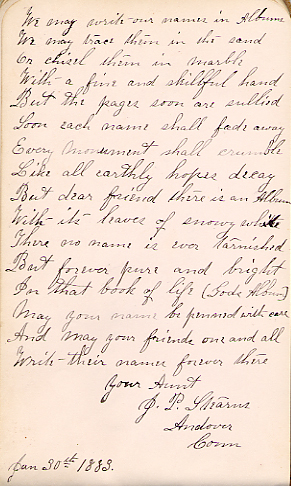 We may write our names in Albums
We may trace them in the sand
Or chisel them in marble
With a fine and skillful hand
But the pages soon are sullied
Soon each name shall fade away
Every Monument shall crumble
Like all earthly hopes decay
But dear friend there is an Album
With its leaves of snowy white
There no name is ever tarnished
But forever pure and bright
In that book of life (Gods Album)
May your name be penned with care
And may your friends one and all
Write their names forever there
Your Aunt
J. P. Stearns
Andover
Conn
Jan 30th 1883.